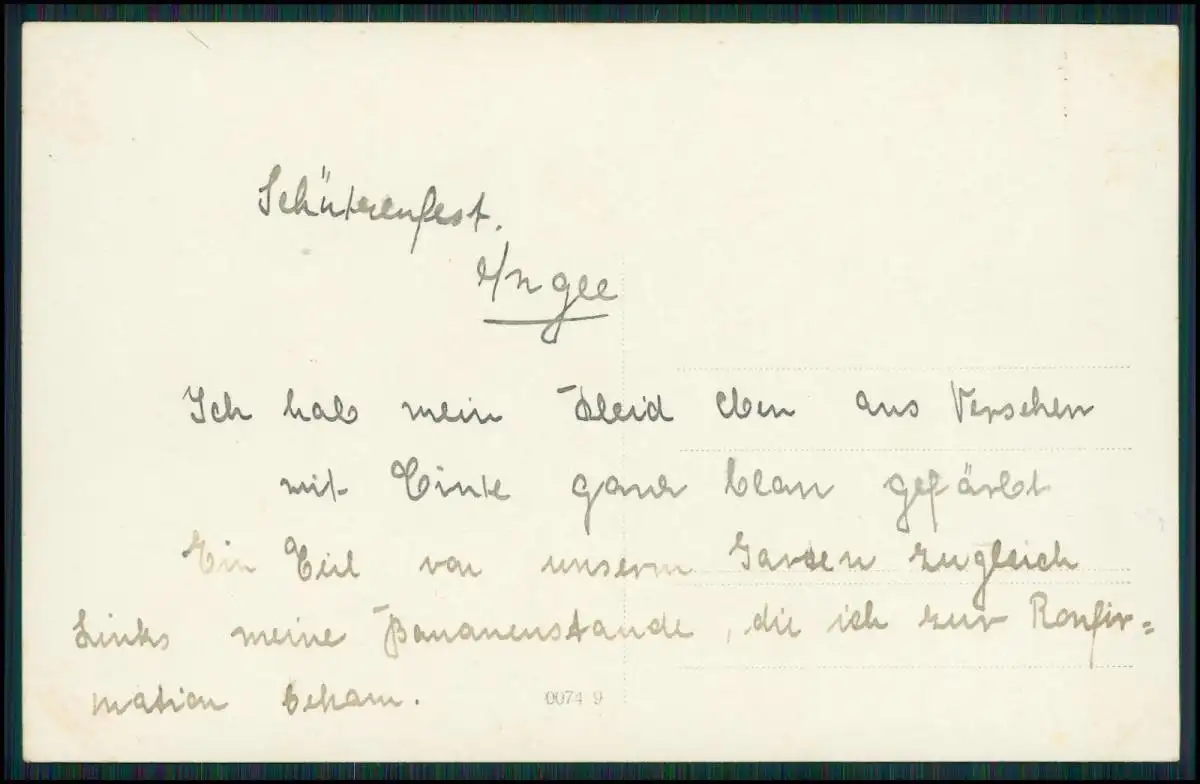 Schützenfest.
Ich hab mein Kleid eben aus Versehen
mit Tinte ganz blau gefärbt
Ein Teil von unserm Garten zugleich
Links meine Bananenstaude, die ich zur Konfir=
mation bekam.
0074 9